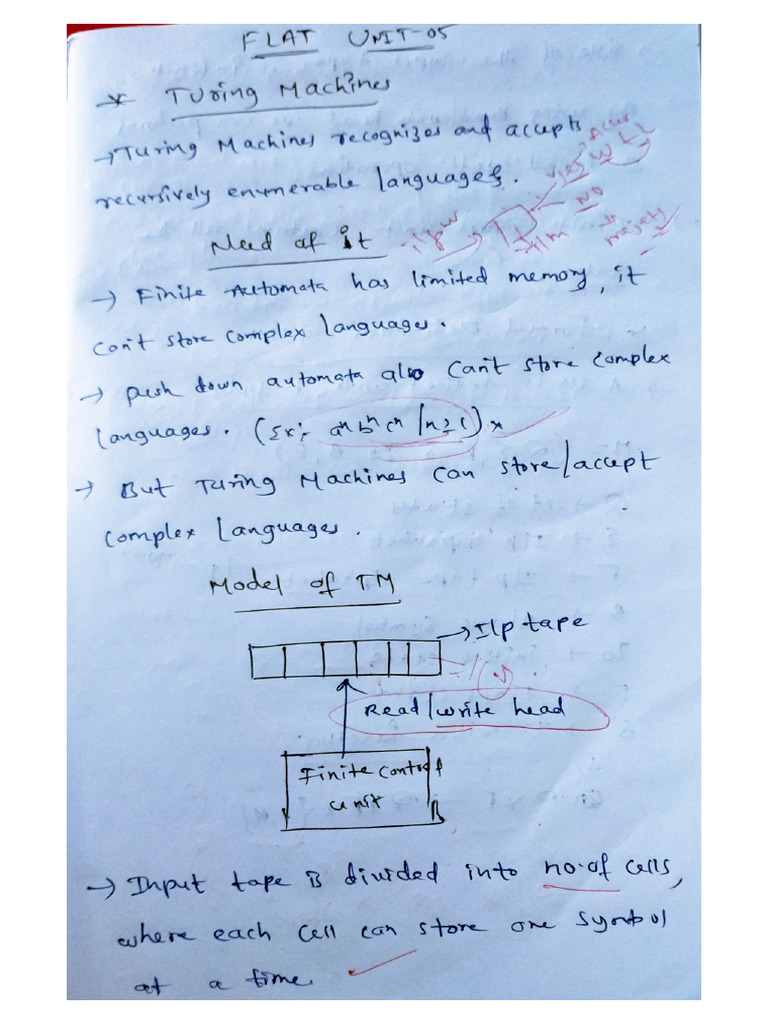 FLAT UNIT-05
* Turing Machines
→ Turing Machines recognizes and accepts
recursively enumerable languages.
Need of it
→ Finite Automata has limited memory, it
can't store complex languages.
→ push down automata also can't store complex
languages. (Ex:- aⁿbⁿcⁿ/n≥1) x
→ But Turing Machines can store/accept
complex languages.
Model of TM
→ I/p tape
Read/write head
Finite control
unit
→ Input tape is divided into no.of cells,
where each cell can store one symbol
at a time.